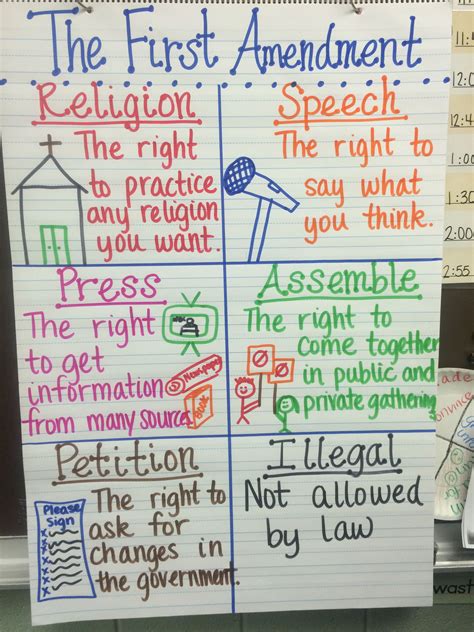 The First Amendment
Religion
The right
to practice
any religion
you want.
Speech
The right to
say what
you think.
Press
The right
to get
information
from many sources
Newspaper
Book
Assemble
The right to
come together
in public and
private gathering
Petition
Please
Sign
The right to
ask for
changes in
the government.
Illegal
Not allowed
by law
11:
12:0
12:4
1:30
2:00
2:55
wast